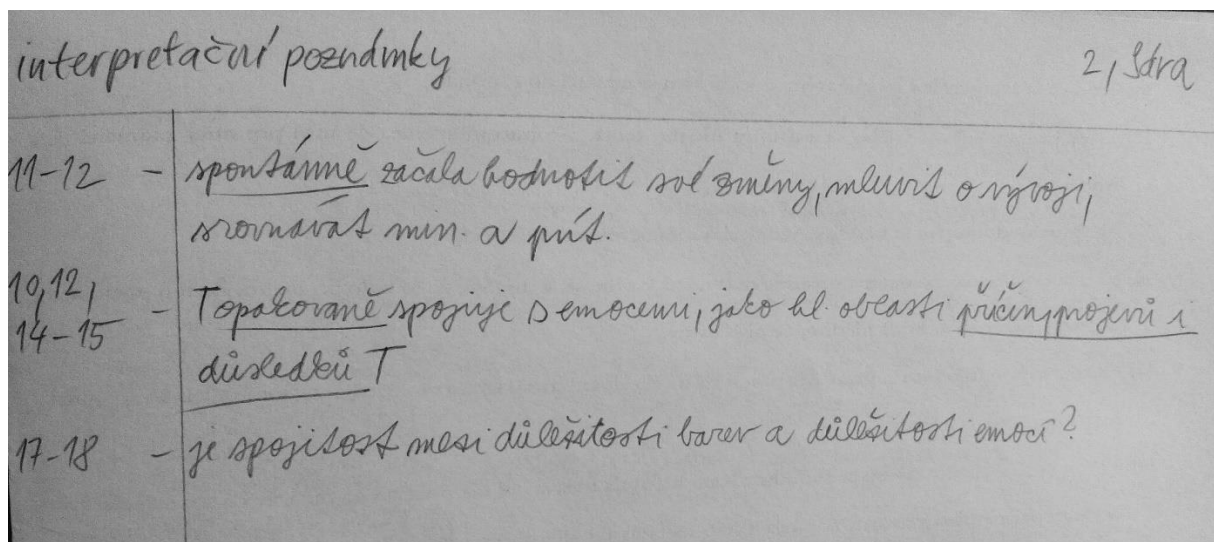 interpretační poznámky 2, Sára
11-12 - spontánně začala hodnotit své změny, mluvit o vývoji,
srovnávat min. a přít.
10, 12,
14-15 - T opakovaně spojuje s emocemi, jako hl. oblasti příčin, projevů i
důsledků T
17-18 - je spojitost mezi důležitostí barev a důležitostí emocí?